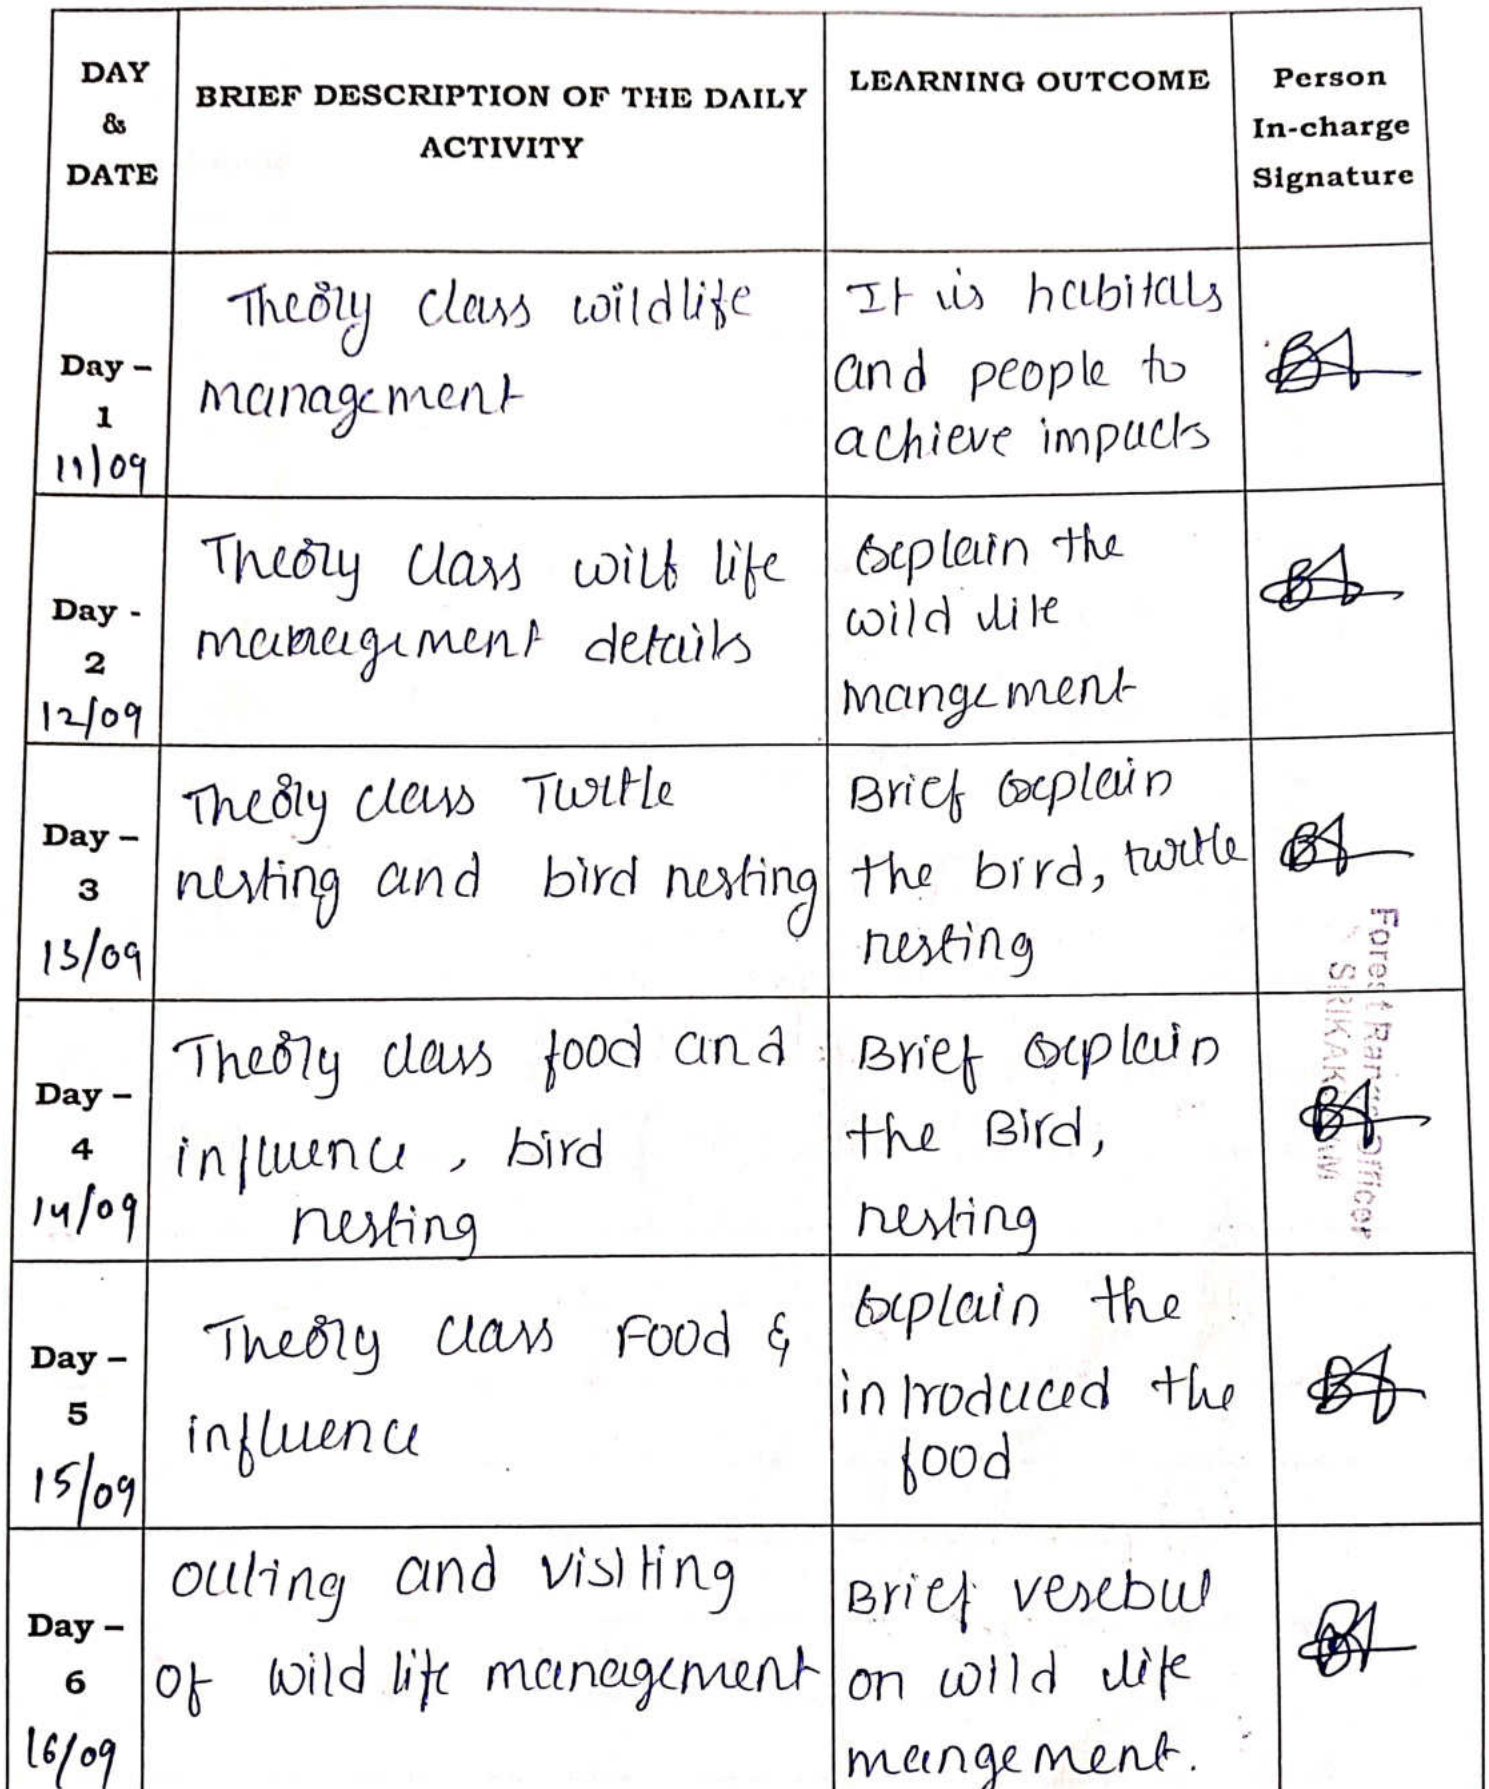 DAY
&
DATE
BRIEF DESCRIPTION OF THE DAILY
ACTIVITY
LEARNING OUTCOME
Person
In-charge
Signature
Day –
1
11/09
Theory class wildlife
management
It is habitals
and people to
achieve impacts
Day -
2
12/09
Theory class wilb life
management details
Explain the
wild life
mangement
Day –
3
13/09
Theory class Turtle
nesting and bird nesting
Brief explain
the bird, turtle
nesting
Day –
4
14/09
Theory class food and
influence , bird
nesting
Brief explain
the Bird,
nesting
Forest Range Officer
SRIKAKULAM
Day –
5
15/09
Theory class Food &
influence
Explain the
introduced the
food
Day –
6
16/09
outing and visiting
of wild life management
Brief
on wild life
mangement.